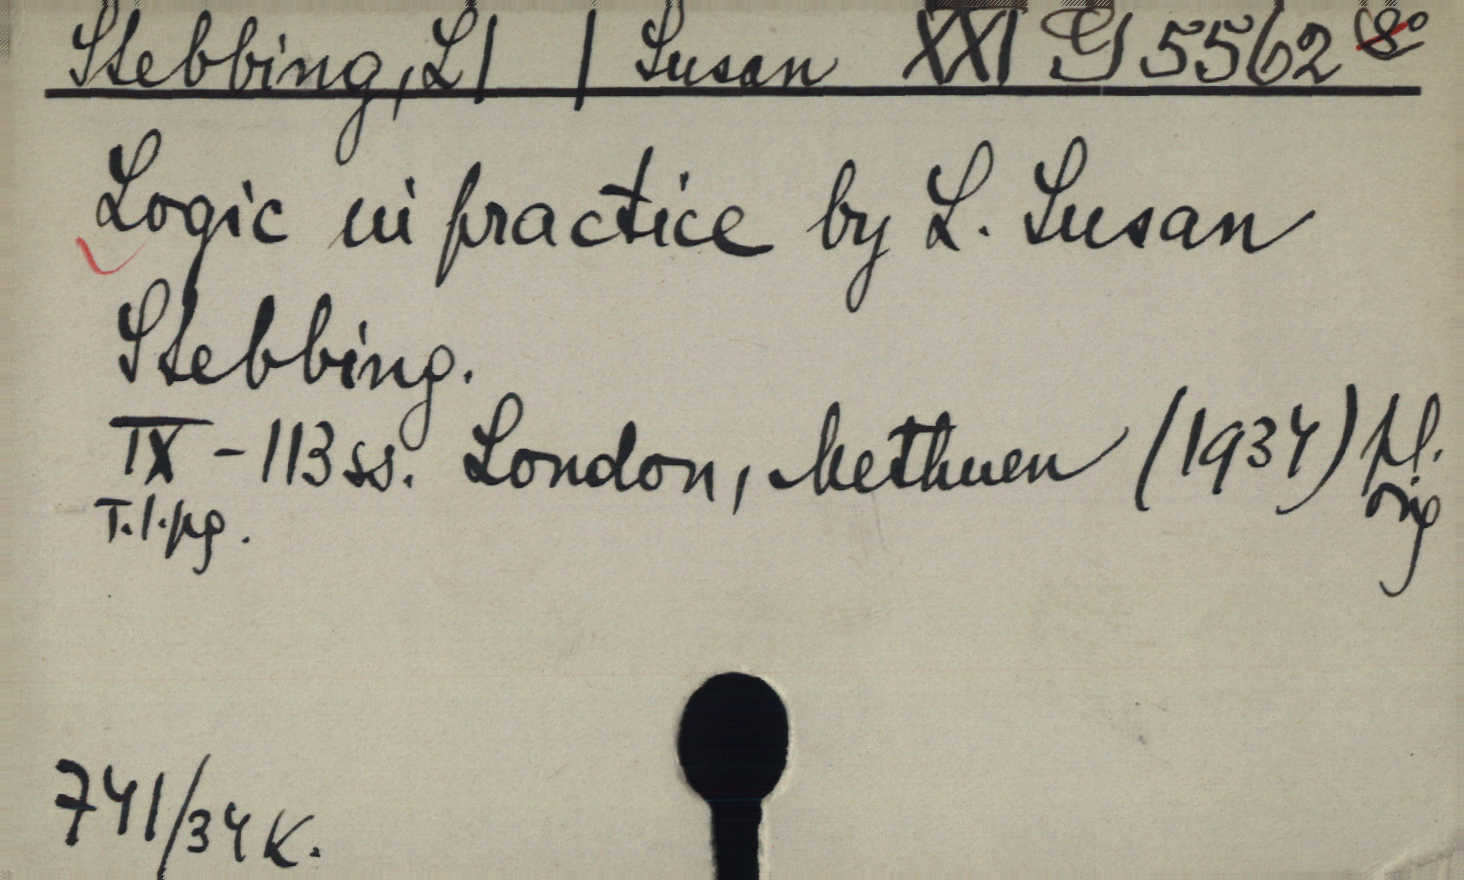 Stebbing, L| | Susan XXI G 5562 8°
Logic in practice by L. Susan
Stebbing.
IX - 113 ss. London, Methuen (1934) pl.
orig
T.l.pg.
741/34 K.